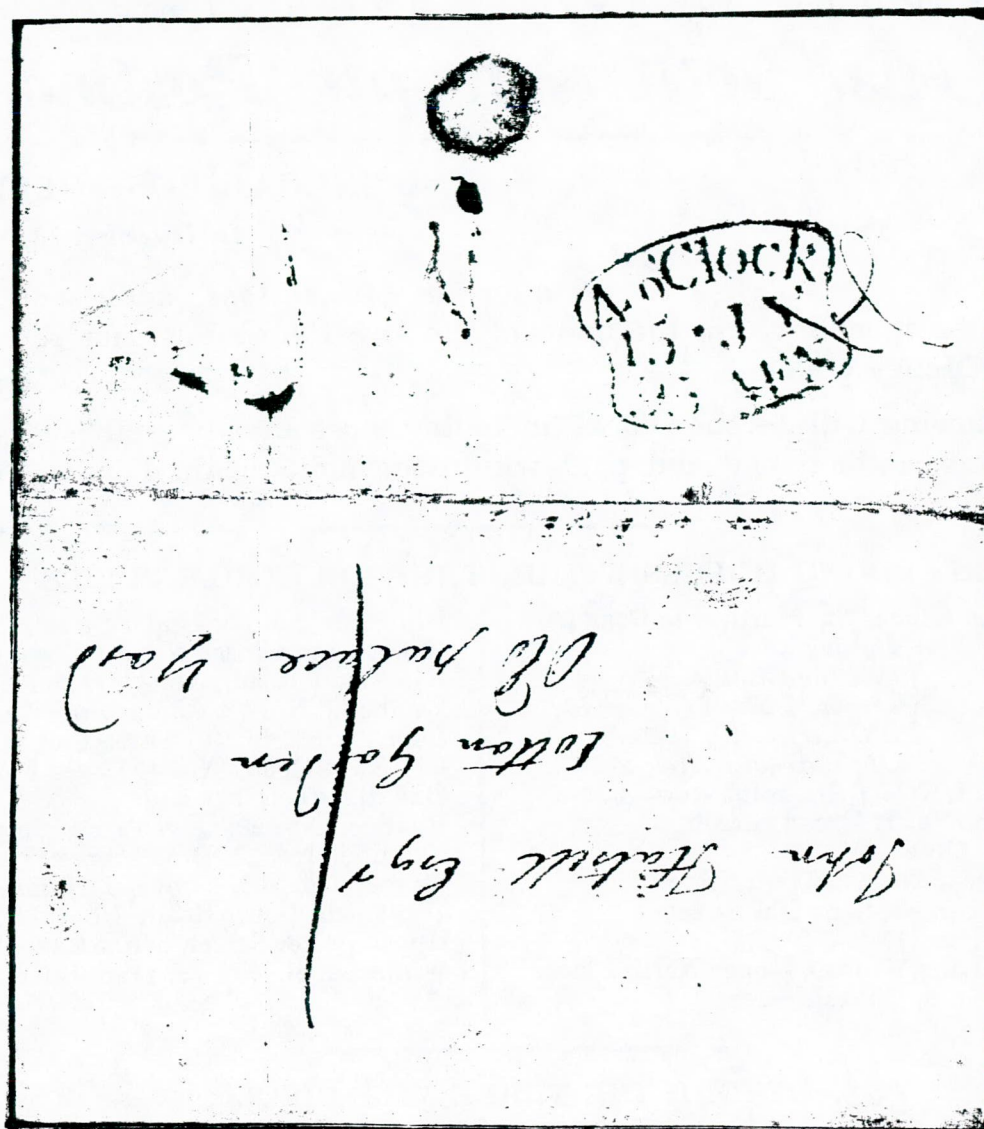 4 oClock
15 · J
John Hatsell Esqr
Cotton Garden
Old palace Yard